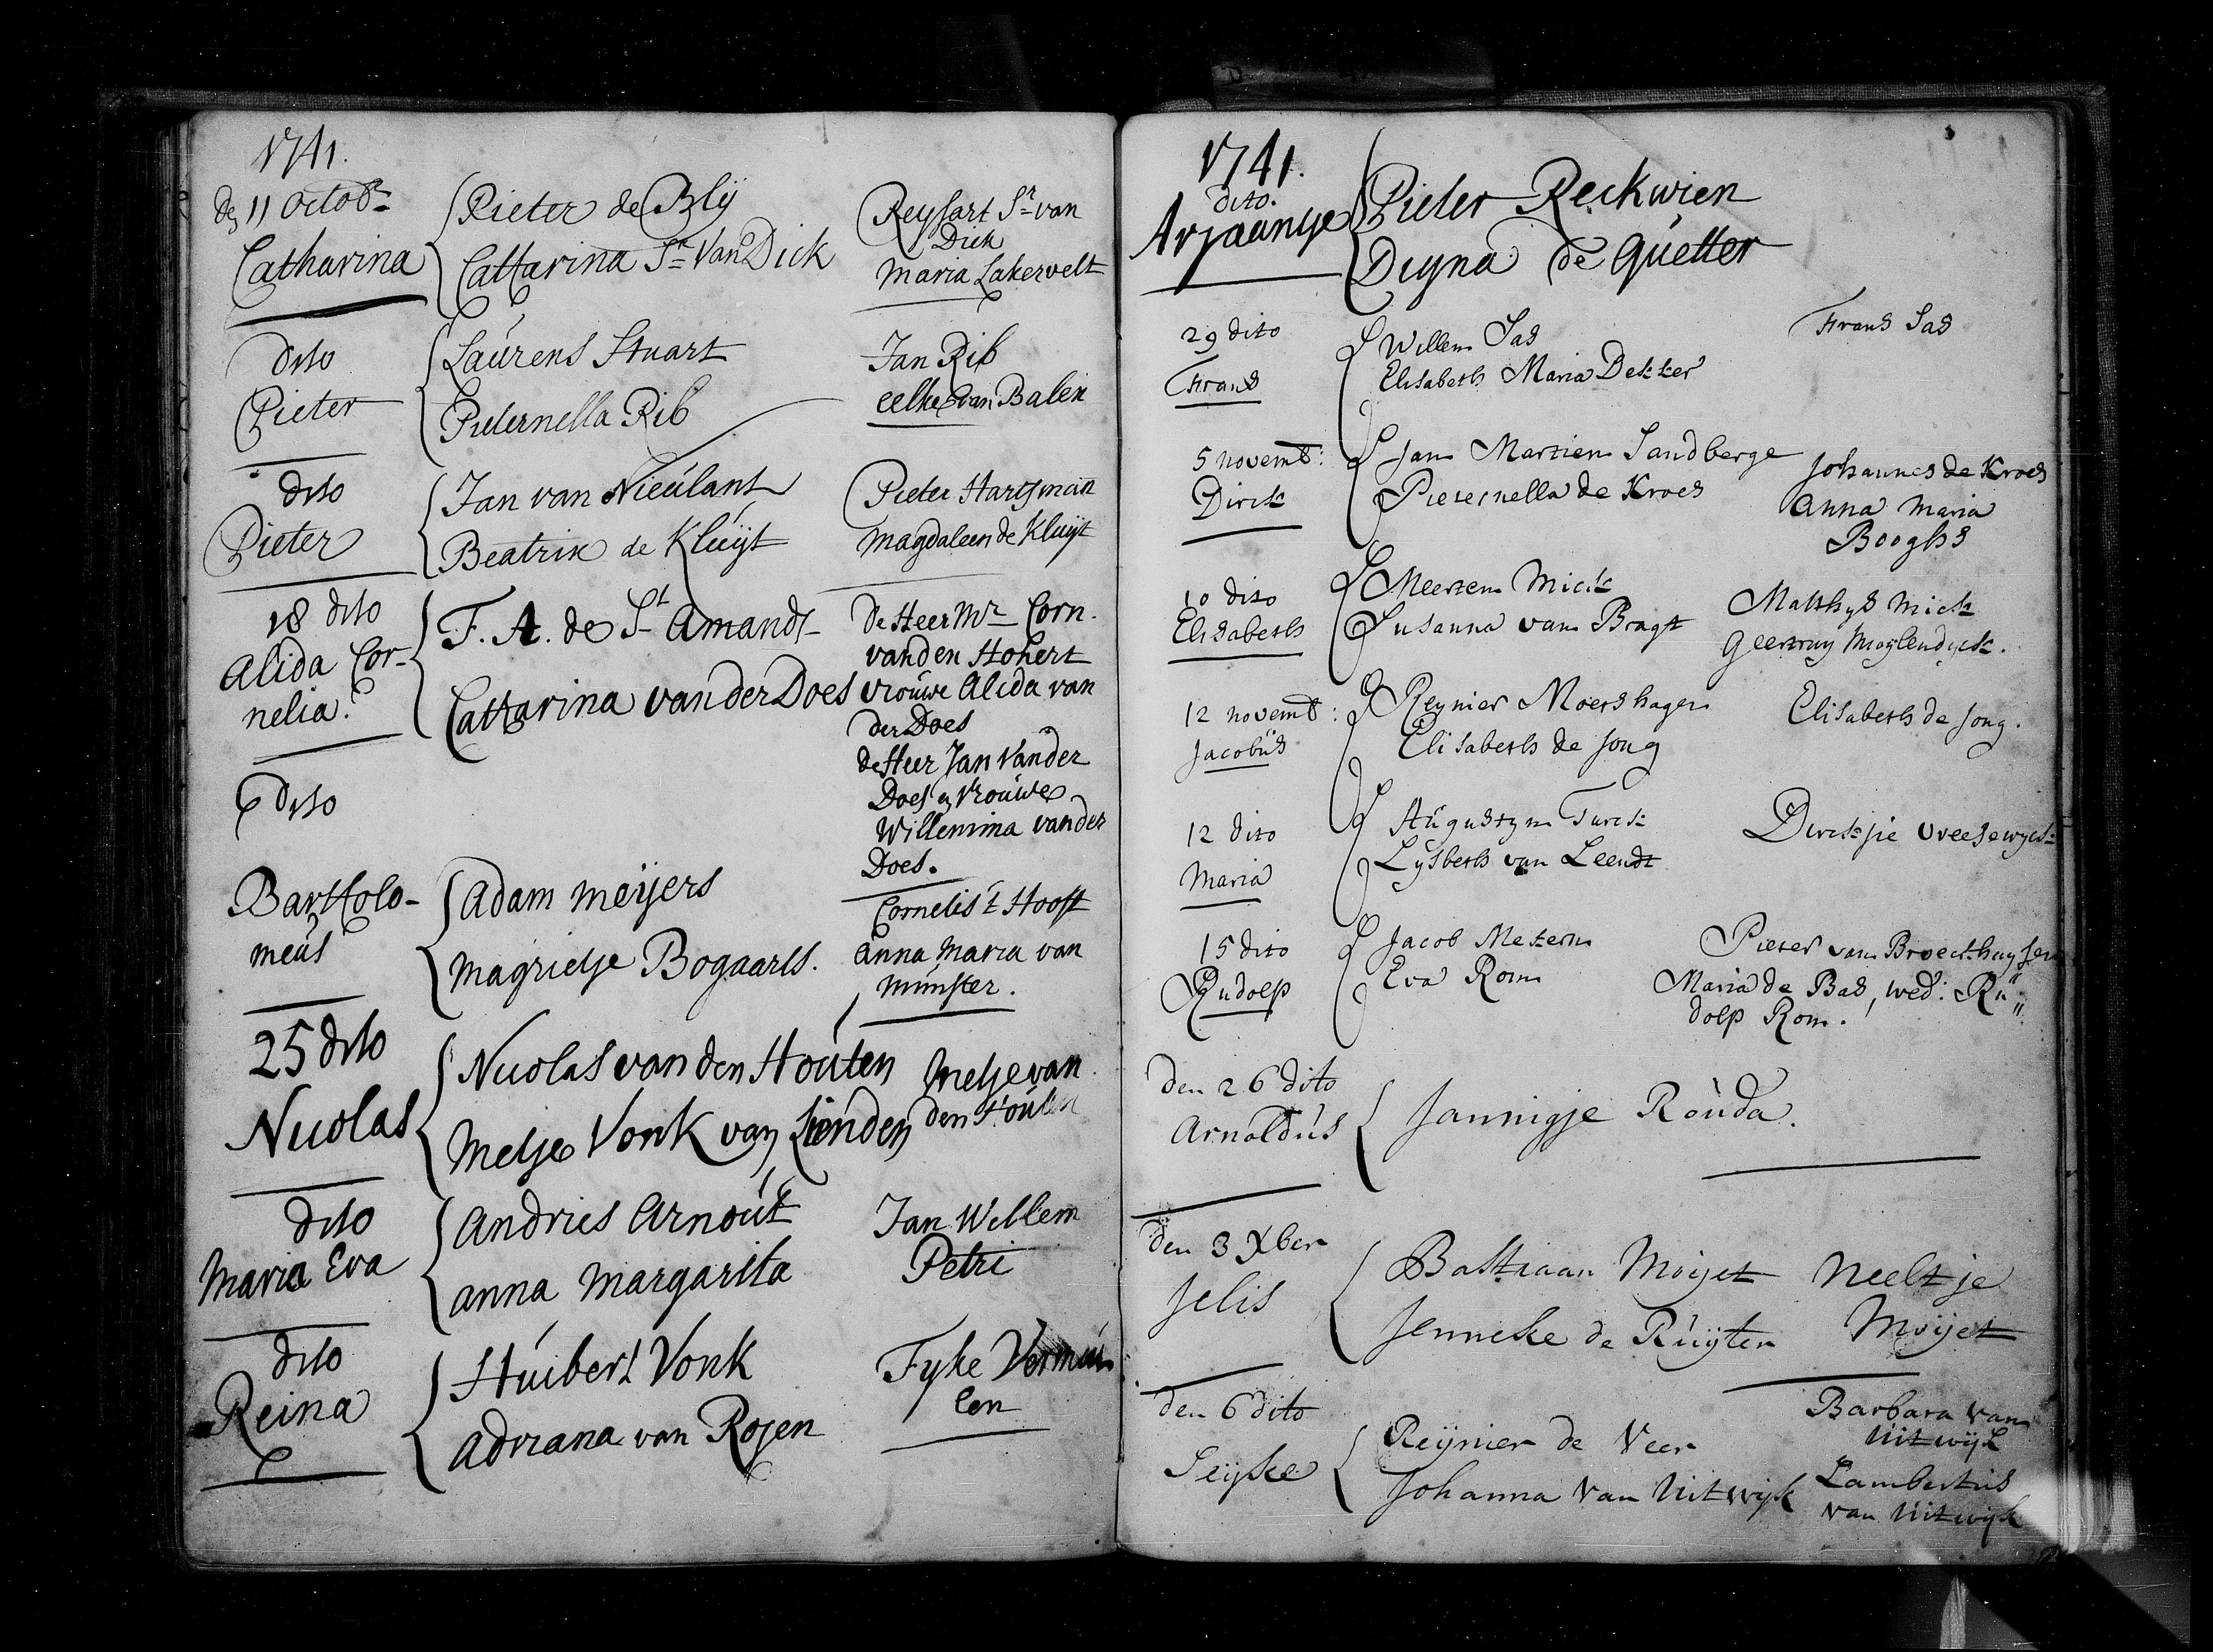 1741.
den 11 Octob=
Catharina
Pieter de Blÿ
Catharina Sr van Dick
Reyfart Sr van
Dick
Maria Lakervelt
dito
Pieter
Laúrens Stuart
Pieternella Rib
Jan Rib
eelke van Balen
dito
Pieter
Jan van Nieúlant
Beatrix de Klúÿt
Pieter Hartsman
Magdaleen de Kluÿt
18 dito
Alida Cor-
nelia.
F. A. de St Amandt
Catharina van der Does
de Heer Mr Corn.
van den Hohert
vroúwe Alida van
der Does
de Heer Jan van der
Does en vroúwe
Willemina van der
Does.
dito
Bartholo-
meús
Adam Meÿers
Magrietje Bogaarts.
Cornelis 't Hooft
Anna Maria van
Múnster.
25 dito
Nicolas
Nicolas van den Hoúten
Metje Vonk van Lienden
Metje van
den Hoúten
dito
Maria Eva
Andries Arnoút
Anna Margarita
Jan Willem
Petri
dito
Reina
Húibert Vonk
Adriana van Rojen
Fyke Vermeú
len
1741.
dito.
Arjaantje
Pieter Reckwien
Digna de Quetter
29 dito
Frans
Willem Sas
Elisabeth Maria Dekker
Frans Sas
5 novemb:
Dirck
Jan Martien Sandberge
Pieternella de Kroes
Johannes de Kroes
Anna Maria
Booghs
10 dito
Elisabeth
Meerten Mick
Susanna van Bragt
Matthys Mick
Geertruy Moylendyck.
12 novemb:
Jacobús
Reynier Moershagen
Elisabeth de Jong
Elisabeth de Jong.
12 dito
Maria
Aúgustyn Turck
Lysbeth van Leendt
Dirckjie Vreeswyck
15 dito
Rudolp
Jacob Metern
Eva Rom
Pieter van Broeckhuysen
Maria de Bas, wed: Ru"
dolp Rom.
den 26 dito
Arnoldús
Jannigje Roúda.
den 3 Xber
Jelis
Bastiaan Moijet
Jenneke de Rúijter
Neeltje
Moijet
den 6 dito
Sijke
Reijnier de Veer
Johanna van Uitwijk
Barbara van
Uitwijk
Lambertús
van Uitwijk